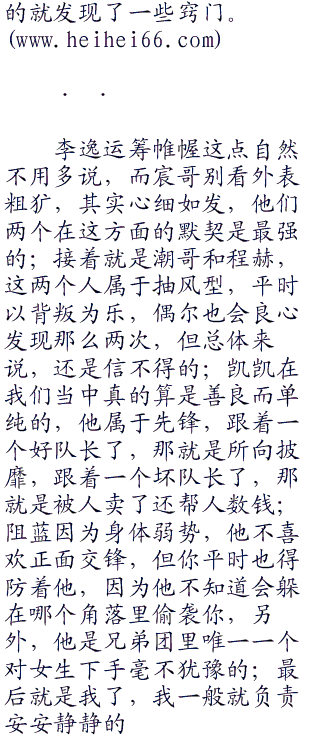 的就发现了一些窍门。
(www.heihei66.com)
. .
李逸运筹帷幄这点自然
不用多说，而宸哥别看外表
粗犷，其实心细如发，他们
两个在这方面的默契是最强
的；接着就是潮哥和程赫，
这两个人属于抽风型，平时
以背叛为乐，偶尔也会良心
发现那么两次，但总体来
说，还是信不得的；凯凯在
我们当中真的算是善良而单
纯的，他属于先锋，跟着一
个好队长了，那就是所向披
靡，跟着一个坏队长了，那
就是被人卖了还帮人数钱；
阻蓝因为身体弱势，他不喜
欢正面交锋，但你平时也得
防着他，因为他不知道会躲
在哪个角落里偷袭你，另
外，他是兄弟团里唯一一个
对女生下手毫不犹豫的；最
后就是我了，我一般就负责
安安静静的